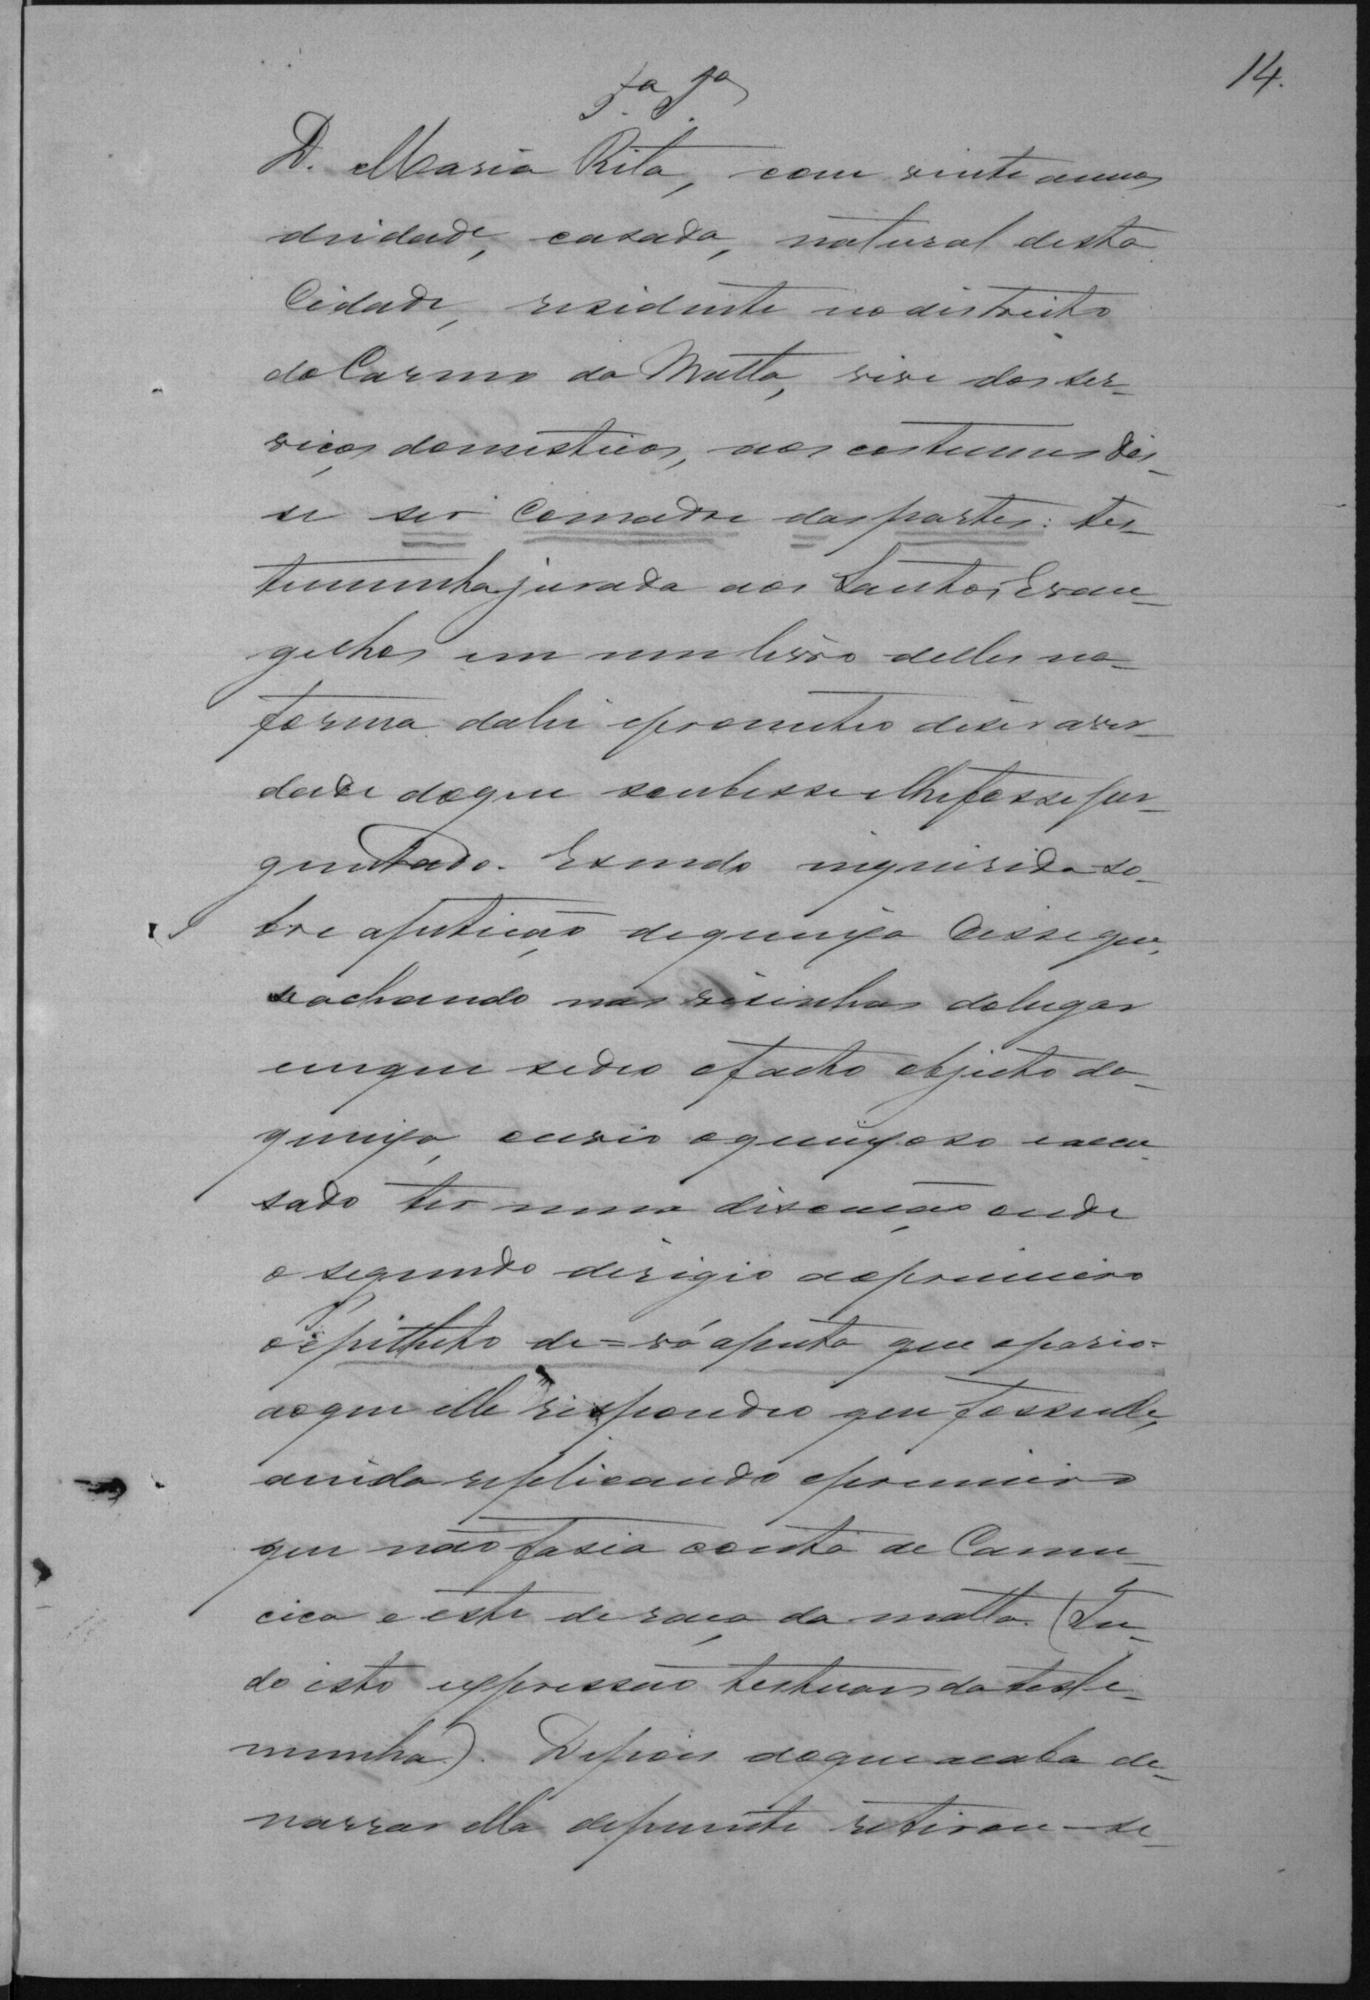 14.
D. Maria Rita, com vinte annos
deidade, casada, natural desta
Cidade, residente no districto
do Carmo da Matta, vive dos ser-
viços domesticos, aos costumes dis-
se ser Comadre das partes: tes-
temunha jurada aos Santos Evan-
gelhos em um livro delles na
forma da lei e prometteo diser a ver-
dade do que soubesse e lhe fosse per-
guntado. E sendo inquirida so-
bre a petição de queixa disse que,
se achando nas visinhas do lugar
em que se deo o facto objecto da
queixa, ouvio o queixoso e accu-
sado ter uma discução onde
o segundo dirigio ao primeiro
o epitheto de = vá a puta que o pario =
ao que elle respondeo que fosse elle,
ainda replicando o primeiro
que não fasia conta de Camu-
cica e este de raça da matta. (Tu-
do isto expressão textuais da teste-
munha). Depois do que acaba de
narrar ella depoente retirou-se